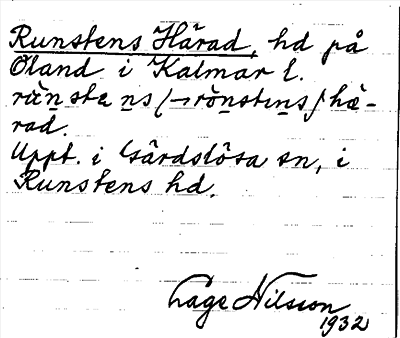 Runstens Härad, hd på
Öland i Kalmar l.
rùnstens (~rònstins) hä-
rad.
Uppt. i Gårdslösa sn, i
Runstens hd.
Lage Nilsson
1932